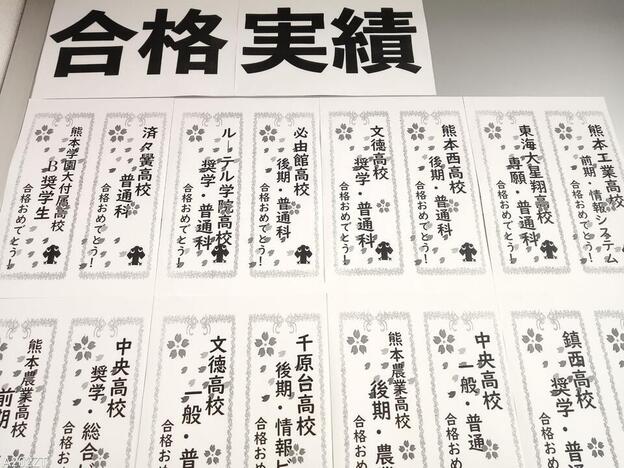 合格実績
熊本工業高校
前期・情報システム
合格おめでとう！
東海大星翔高校
専願・普通科
合格おめでとう！
熊本西高校
後期・普通科
合格おめでとう！
文徳高校
奨学・普通科
合格おめでとう！
必由館高校
後期・普通科
合格おめでとう！
ルーテル学院高校
奨学・普通科
合格おめでとう！
済々黌高校
普通科
合格おめでとう！
熊本学園大付属高校
B奨学生
合格おめでとう！
熊本
鎮西高校
奨学・普
合格お
中央高校
一般・普通
合格おめ
熊本農業高校
後期・農
合格おめ
千原台高校
後期・情報ビ
合格おめ
文徳高校
一般・普
合格おめ
中央高校
奨学・総合ビ
合格おめ
熊本農業高校
前期